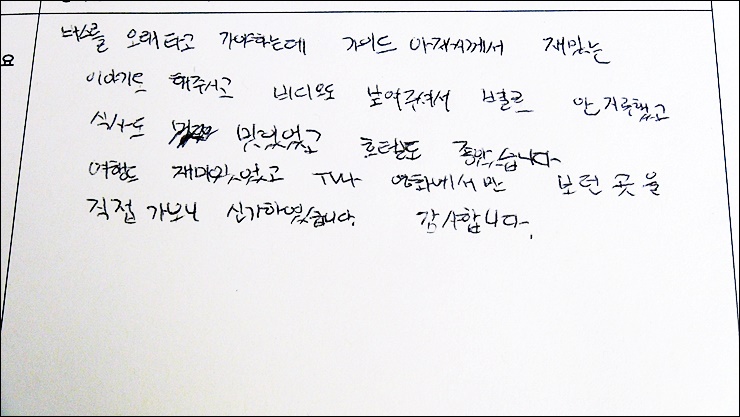 버스를 오래타고 가야하는데 가이드 아저씨께서 재밌는
요
이야기도 해주시고 비디오도 보여주셔서 별로 안 지루했고
식사도 맛있었고 호텔도 좋았습니다.
여행도 재미있었고 TV나 영화에서만 보던 곳을
직접 가보니 신기하였습니다. 감사합니다.